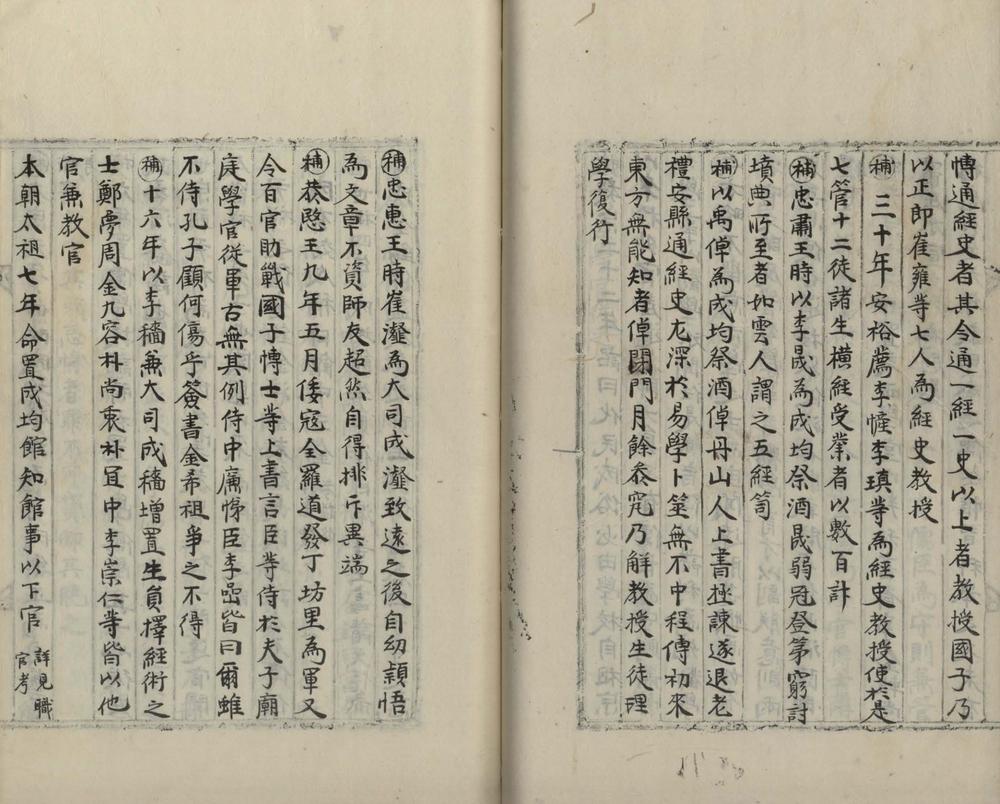 博通經史者其令通一經一史以上者教授國子乃
以正郎崔雍等七人爲經史教授
補三十年安裕薦李㦃李瑱等爲經史教授使於是
七管十二徒諸生橫經受業者以數百計
補忠肅王時以李晟爲成均祭酒晟弱冠登第窮討
墳典所至者如雲人謂之五經笥
補以禹倬爲成均祭酒倬丹山人上書極諫遂退老
禮安縣通經史尤深於易學卜筮無不中程傳初來
東方無能知者倬閉門月餘叅究乃解教授生徒理
學復行
補忠惠王時崔瀣爲大司成瀣致遠之後自幼穎悟
爲文章不資師友超然自得排斥異端
補恭愍王九年五月倭寇全羅道發丁坊里爲軍又
令百官助戰國子博士等上書言臣等侍於夫子廟
庭學官從軍古無其例侍中廉悌臣李嵒皆曰爾雖
不侍孔子顧何傷乎簽書金希祖爭之不得
補十六年以李穡兼大司成穡增置生負擇經術之
士鄭夢周金九容朴尚衷朴宜中李崇仁等皆以他
官兼教官
本朝太祖七年命置成均館知館事以下官詳見職
官考